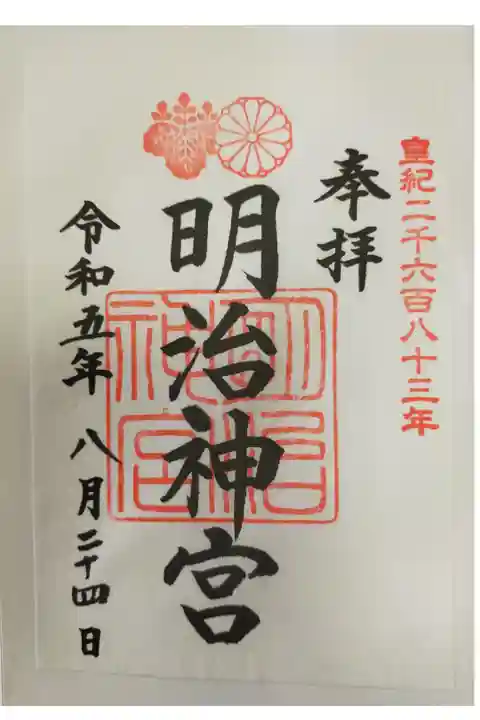 皇紀二千六百八十三年
奉拝
明治神宮
明治神宮
令和五年 八月二十四日